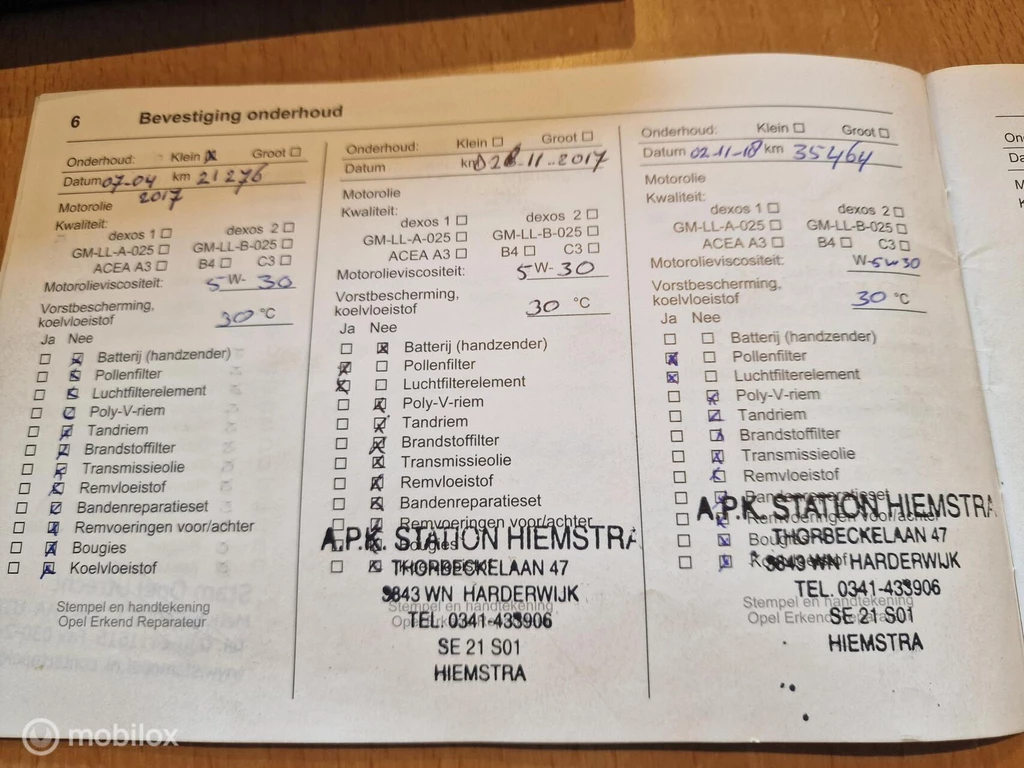 6 Bevestiging onderhoud
Onderhoud: Klein ☒ Groot ☐
Datum 07-04 km 21276
2017
Motorolie
Kwaliteit:
dexos 1 ☐ dexos 2 ☐
GM-LL-A-025 ☐ GM-LL-B-025 ☐
ACEA A3 ☐ B4 ☐ C3 ☐
Motorolieviscositeit: 5 W- 30
Vorstbescherming,
koelvloeistof 30 °C
Ja Nee
☐ ☒ Batterij (handzender)
☐ ☒ Pollenfilter
☐ ☒ Luchtfilterelement
☐ ☒ Poly-V-riem
☐ ☒ Tandriem
☐ ☒ Brandstoffilter
☐ ☒ Transmissieolie
☐ ☒ Remvloeistof
☐ ☒ Bandenreparatieset
☐ ☒ Remvoeringen voor/achter
☐ ☒ Bougies
☐ ☒ Koelvloeistof
Stempel en handtekening
Opel Erkend Reparateur
Onderhoud: Klein ☐ Groot ☐
Datum km 11-2017
Motorolie
Kwaliteit:
dexos 1 ☐ dexos 2 ☐
GM-LL-A-025 ☐ GM-LL-B-025 ☐
ACEA A3 ☐ B4 ☐ C3 ☐
Motorolieviscositeit: 5 W- 30
Vorstbescherming,
koelvloeistof 30 °C
Ja Nee
☐ ☒ Batterij (handzender)
☒ ☐ Pollenfilter
☒ ☐ Luchtfilterelement
☐ ☒ Poly-V-riem
☐ ☒ Tandriem
☐ ☒ Brandstoffilter
☐ ☒ Transmissieolie
☐ ☒ Remvloeistof
☐ ☒ Bandenreparatieset
☐ ☒ Remvoeringen voor/achter
A.P.K. STATION HIEMSTRA
☐ ☒ Bougies
THORBECKELAAN 47
3843 WN HARDERWIJK
Stempel en handtekening
TEL. 0341-433906
Opel Erkend
SE 21 S01
HIEMSTRA
Onderhoud: Klein ☐ Groot ☐
Datum 02-11-18 km 35464
Motorolie
Kwaliteit:
dexos 1 ☐ dexos 2 ☐
GM-LL-A-025 ☐ GM-LL-B-025 ☐
ACEA A3 ☐ B4 ☐ C3 ☐
Motorolieviscositeit: W-5w30
Vorstbescherming,
koelvloeistof 30 °C
Ja Nee
☐ ☐ Batterij (handzender)
☒ ☐ Pollenfilter
☒ ☐ Luchtfilterelement
☐ ☒ Poly-V-riem
☐ ☒ Tandriem
☐ ☒ Brandstoffilter
☐ ☒ Transmissieolie
☐ ☒ Remvloeistof
☐ ☒ Bandenreparatieset
A.P.K. STATION HIEMSTRA
☐ ☒ Remvoeringen voor/achter
THORBECKELAAN 47
3843 WN HARDERWIJK
TEL. 0341-433906
Stempel en handtekening
Opel Erkend Reparateur
SE 21 S01
HIEMSTRA
mobilox